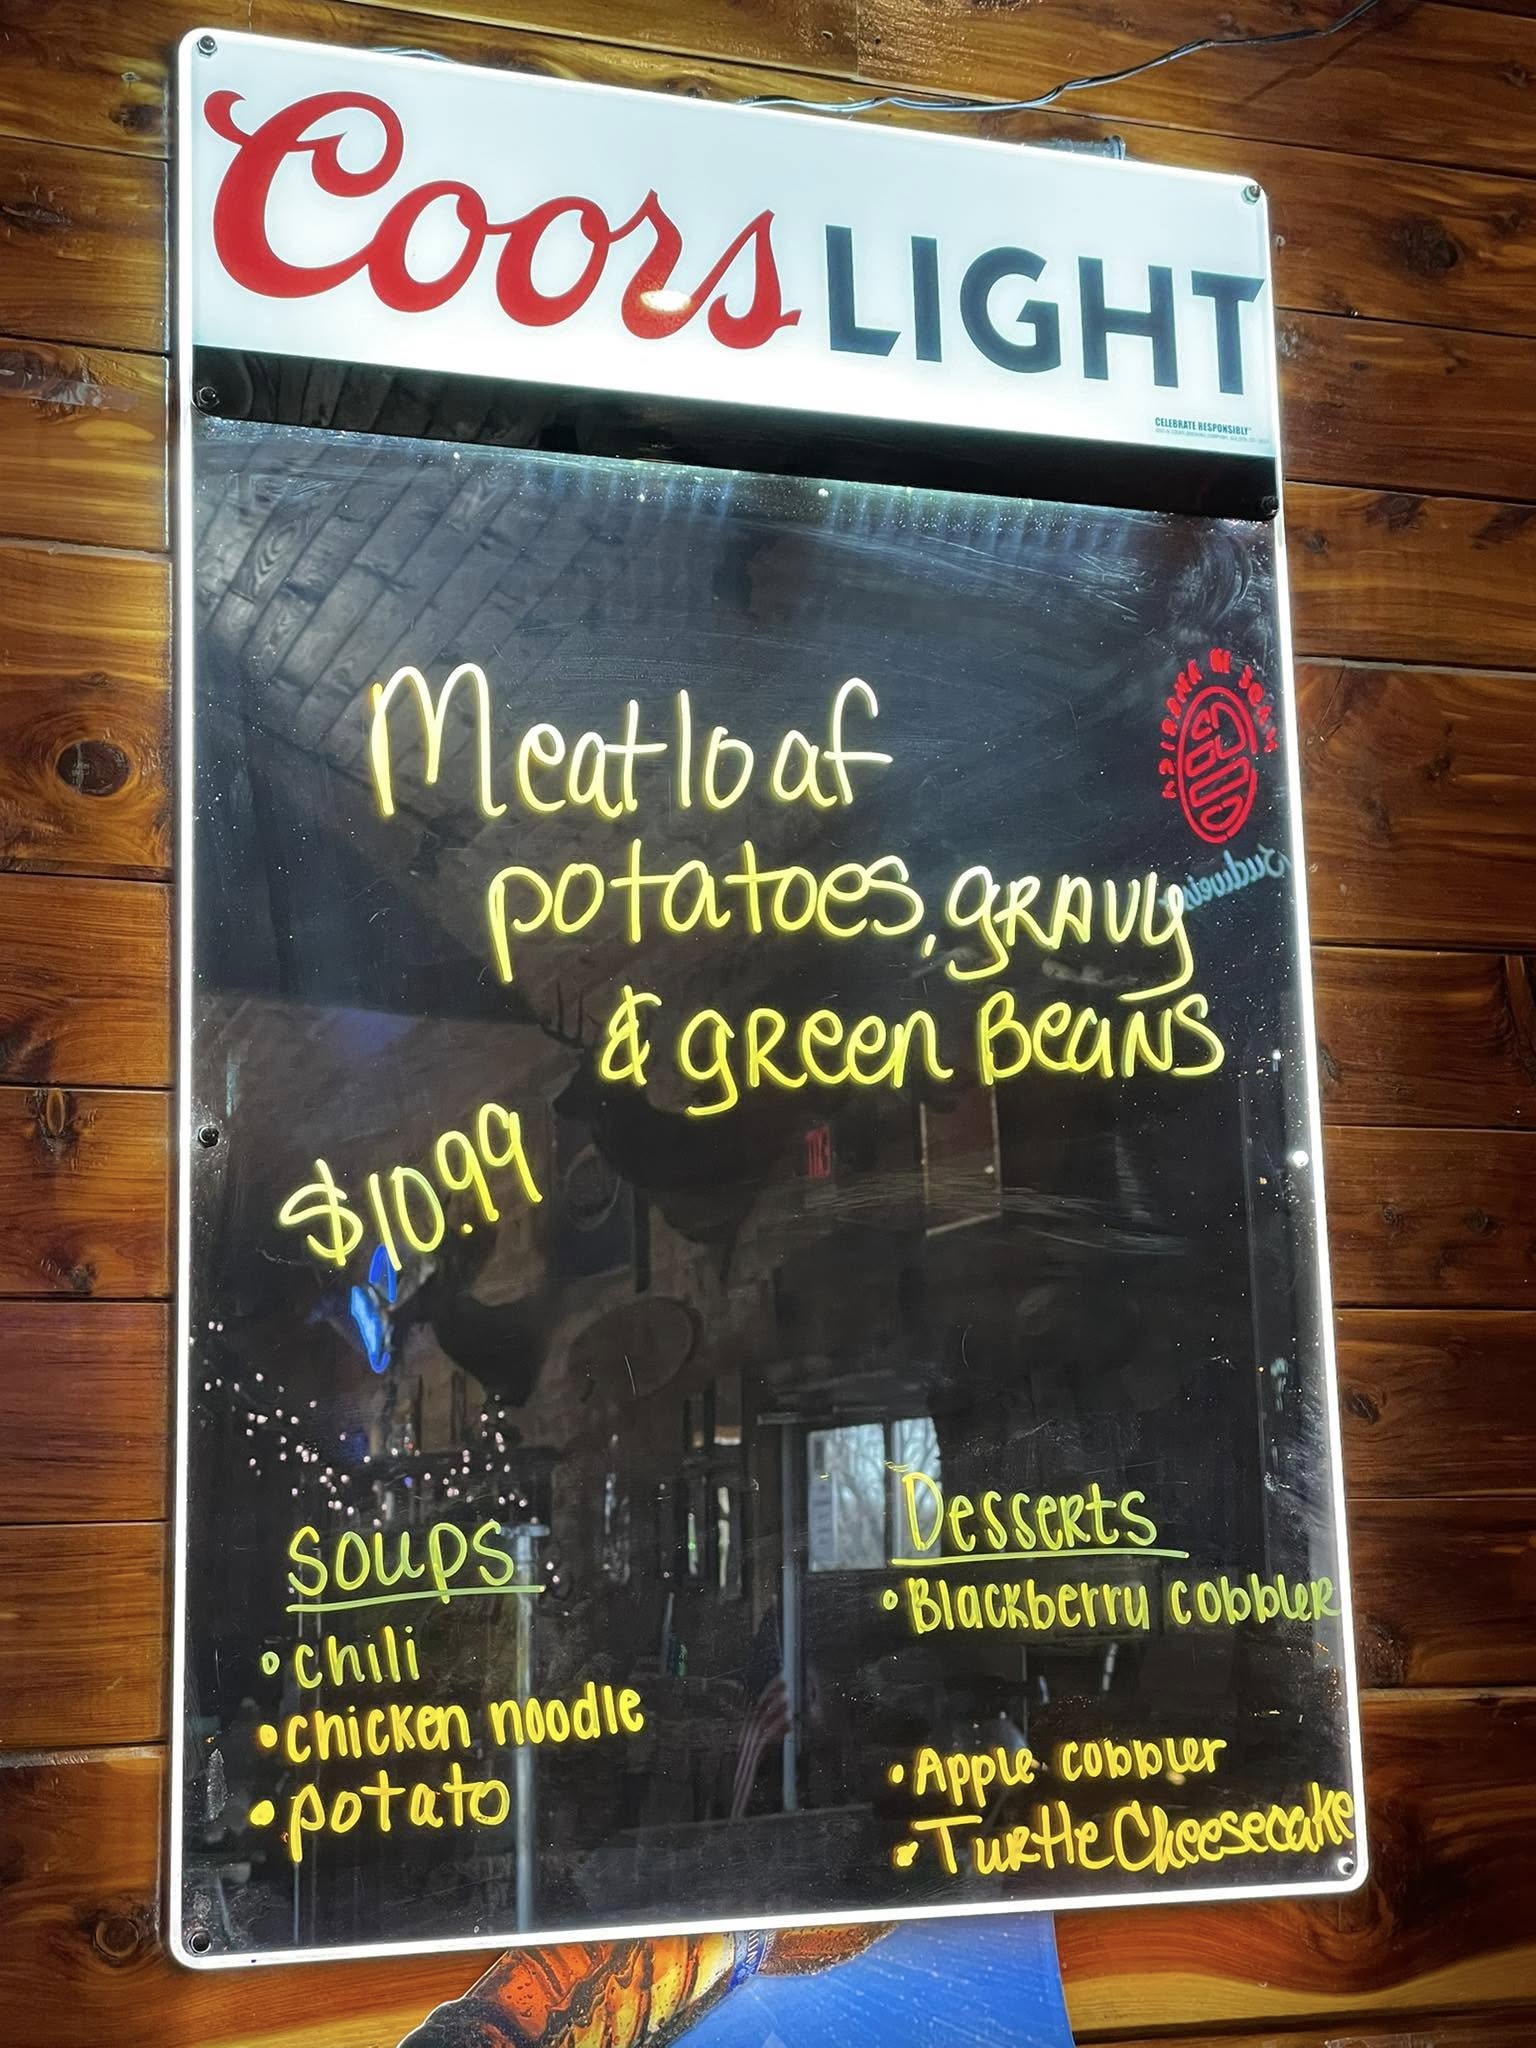 Coors LIGHT
CELEBRATE RESPONSIBLY
Meatloaf
potatoes, gravy
& green Beans
$10.99
Soups
• chili
• chicken noodle
• potato
Desserts
• Blackberry cobbler
• Apple cobbler
• Turtle Cheesecake